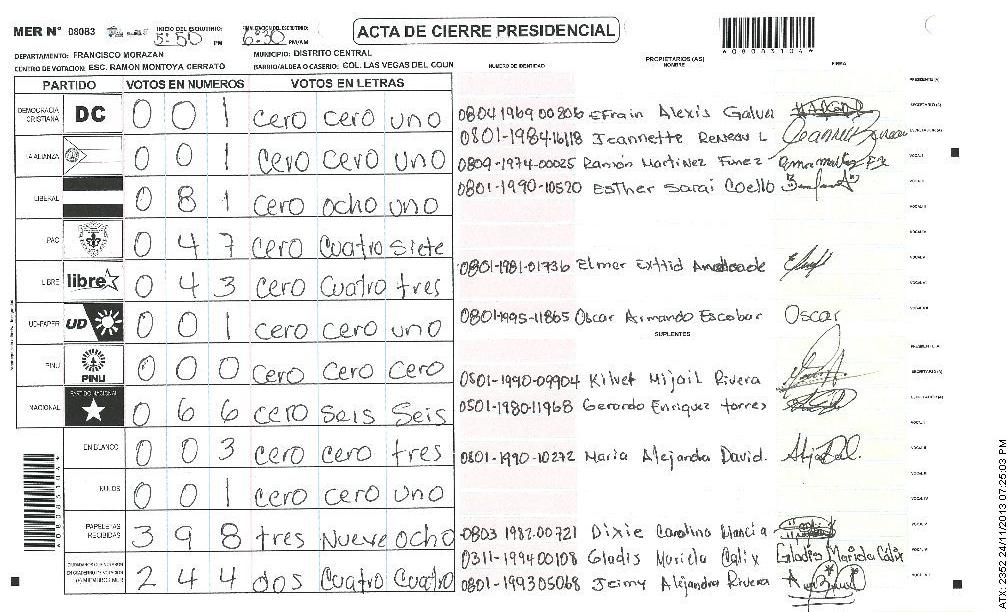 MER N° 08083 INICIO DEL ESCRUTINIO: 5:50 PM 6:30 PM/AM ACTA DE CIERRE PRESIDENCIAL
*08083104*
DEPARTAMENTO: FRANCISCO MORAZAN MUNICIPIO: DISTRITO CENTRAL
CENTRO DE VOTACION: ESC. RAMON MONTOYA CERRATO BARRIO/ALDEA O CASERIO: COL. LAS VEGAS DEL COUN
NUMERO DE IDENTIDAD PROPIETARIOS (AS) NOMBRE FIRMA
PARTIDO VOTOS EN NUMEROS VOTOS EN LETRAS
DEMOCRACIA CRISTIANA DC 0 0 1 cero cero uno
ALIANZA 0 0 1 cero cero uno
LIBERAL 0 8 1 cero ocho uno
PAC 0 4 7 cero cuatro siete
LIBRE libre 0 4 3 cero cuatro tres
UD-FAPER UD 0 0 1 cero cero uno
PINU PINU 0 0 0 cero cero cero
NACIONAL PARTIDO NACIONAL 0 6 6 cero Seis Seis
EN BLANCO 0 0 3 cero cero tres
NULOS 0 0 1 cero cero uno
PAPELETAS RECIBIDAS 3 9 8 tres Nueve ocho
2 4 4 dos Cuatro Cuatro
0804 1969 00806 Efrain Alexis Galva
0801-1984-16118 Jeannette Reneau L
0809-1974-00025 Ramón Martinez Funez
0801-1990-10520 Esther Sarai Coello
0801-1981-01736 Elmer Exttid Andrade
0801-1995-11865 Oscar Armando Escobar Oscar
SUPLENTES
0801-1990-09904 Kilvet Mijail Rivera
0501-1980-11968 Gerardo Enriquez torres
0801-1990-10272 Maria Alejandra David.
0803 1982-00721 Dixie Carolina
0311-1994 00108 Gladis Mariela Calix Gladis Mariela Calix
0801-1993 05068 Jeimy Alejandra Rivera
ATX 2352 24/11/2013 07:25:03 PM